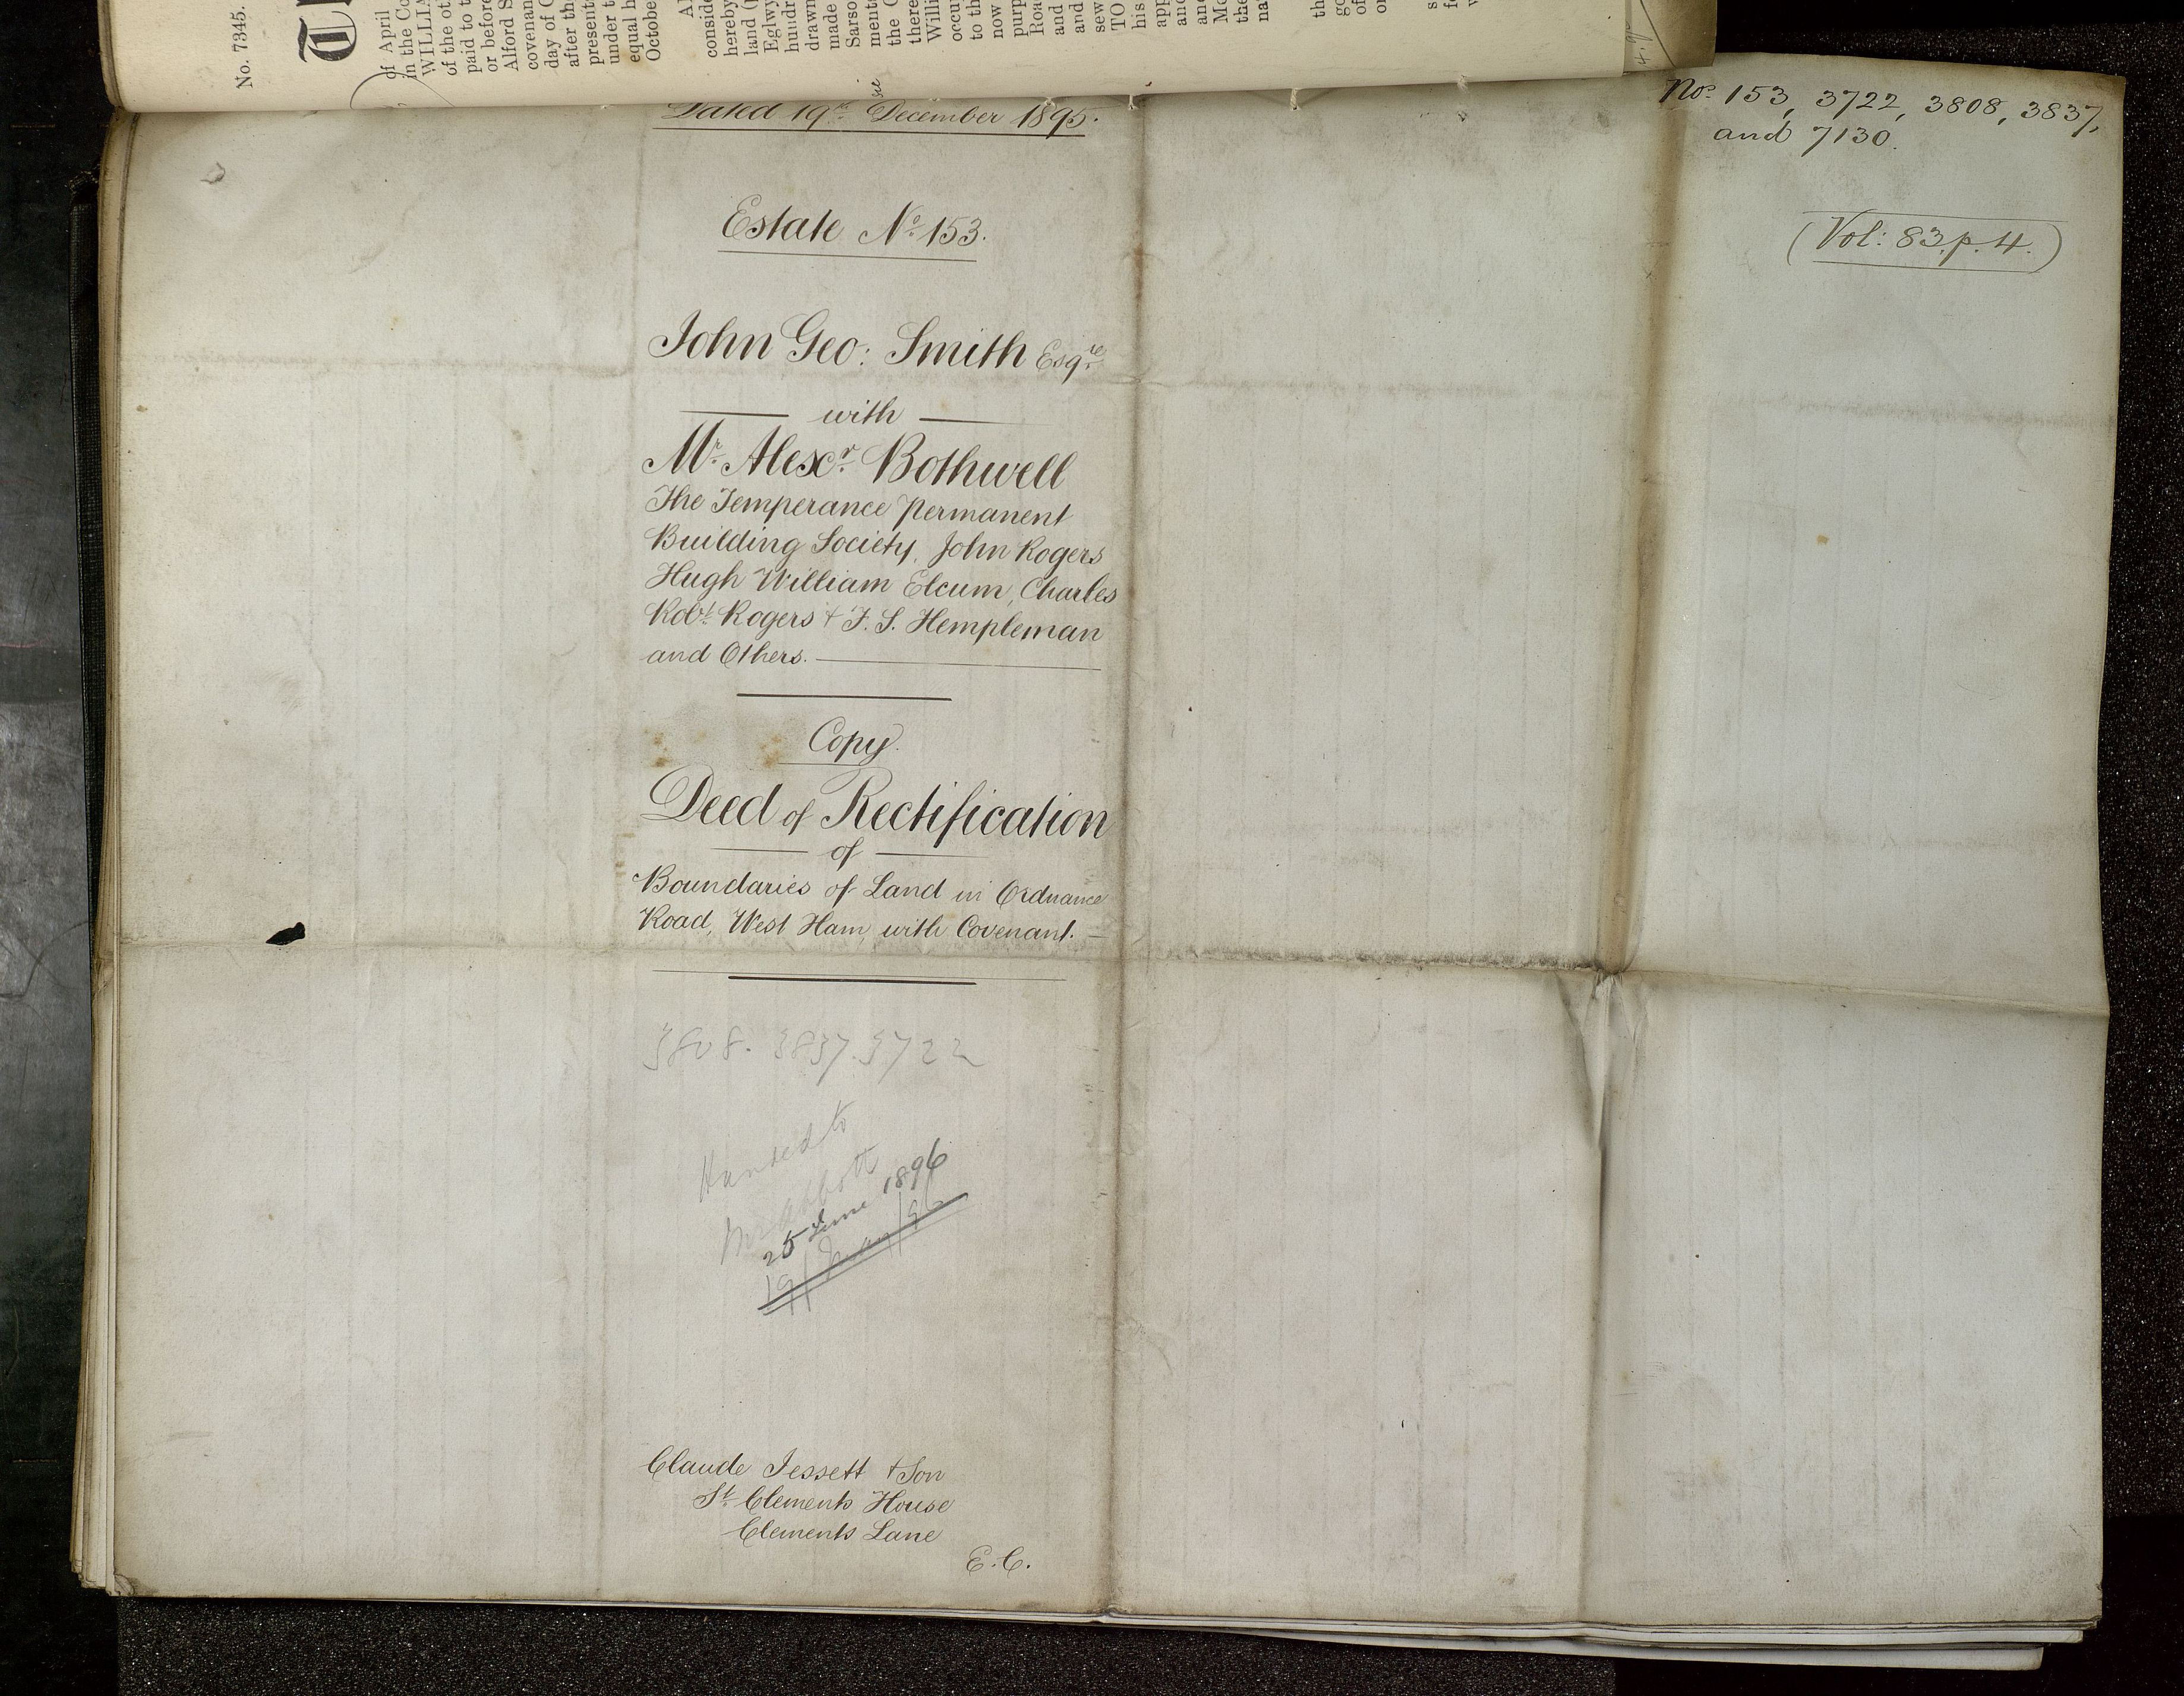 No. 7345.
of April
in the Co
WILLIA
of the oth
paid to t
or before
Alford S
covenan
day of O
after tha
presenta
under t
equal h
October
Al
conside
hereby
land (
Eglwy
hundr
drawn
made
Sarso
menta
the C
there
Willi
occup
to th
now
purp
Roa
and
and
sew
TO
his
app
and
and
Mo
the
na
Dated 19th December 1895.
Nos. 153, 3722, 3808, 3837,
and 7130.
(Vol: 83, p. 4.)
Estate No. 153.
John Geo: Smith Esqre
with
Mr. Alexr. Bothwell
The Temperance Permanent
Building Society, John Rogers
Hugh William Elcum, Charles
Robt. Rogers & F. S. Hempleman
and Others.
Copy.
Deed of Rectification
of
Boundaries of Land in Ordnance
Road, West Ham, with Covenant.
3808. 3837. 3722
Handed to
Mr Abbott
25 June 1896
19/ Jany/96
Claude Jessett & Son
St. Clements House
Clements Lane
E.C.